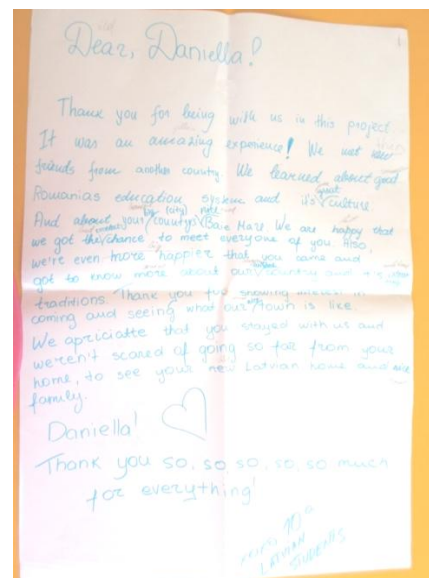 Dear, Daniella!
Thank you for being with us in this project
It was an amazing experience! We met new
friends from another country. We learned about good
Romanias education system and it's great culture.
And about your country's big (city) Baia Mare We are happy that
we got the chance to meet everyone of you. Also,
we're even more happier that you came and
got to know more about our country and it's
traditions. Thank you for showing interest in
coming and seeing what our town is like.
We apriciatte that you stayed with us and
weren't scared of going so far from your
home, to see your new Latvian home and
family.
Daniella!
Thank you so, so, so, so, so much
for everything!
10a
LATVIAN
STUDENTS